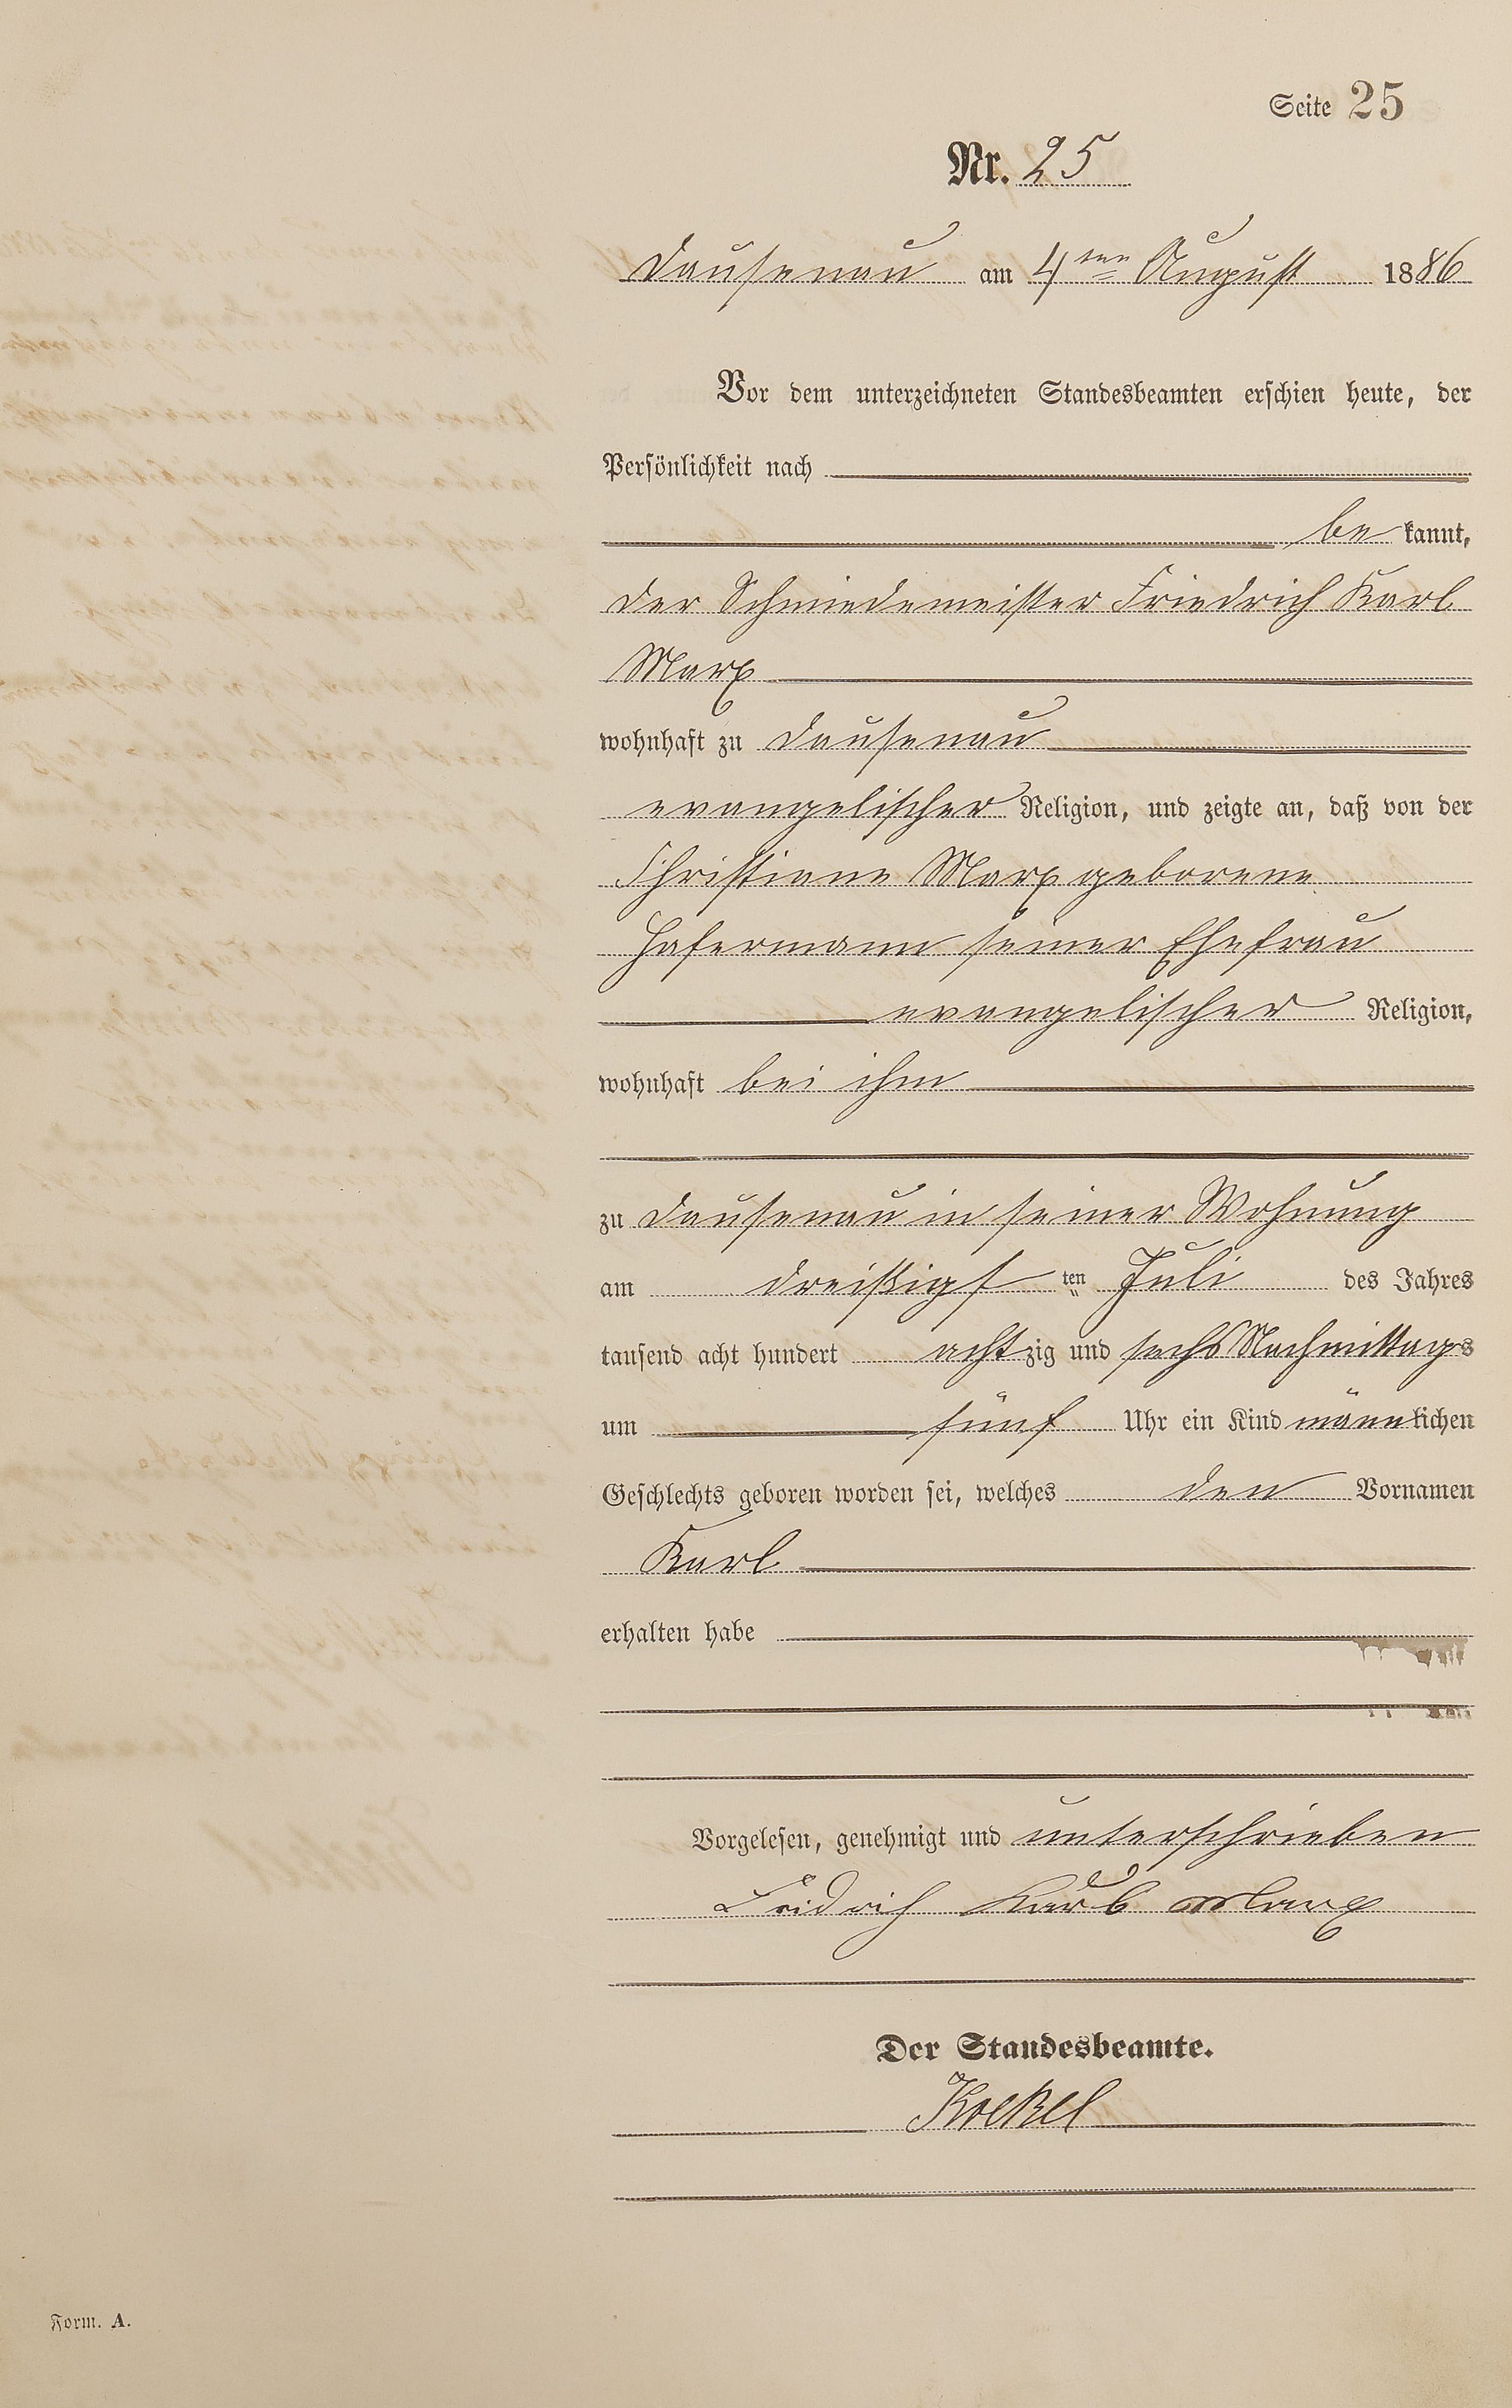 Seite 25
Nr. 25
Dausenau am 4ten August 1886
Vor dem unterzeichneten Standesbeamten erschien heute, der
Persönlichkeit nach
be kannt,
der Schmiedemeister Friedrich Karl
Marx
wohnhaft zu Dausenau
evangelischer Religion, und zeigte an, daß von der
Christiane Marx geborene
Hafermann seiner Ehefrau
evangelischer Religion,
wohnhaft bei ihm
zu Dausenau in seiner Wohnung
am dreißigsten Juli des Jahres
tausend acht hundert achtzig und sechs Nachmittags
um fünf Uhr ein Kind männlichen
Geschlechts geboren worden sei, welches den Vornamen
Karl
erhalten habe
Vorgelesen, genehmigt und unterschrieben
Fridrich Karl Marx
Der Standesbeamte.
Form. A.